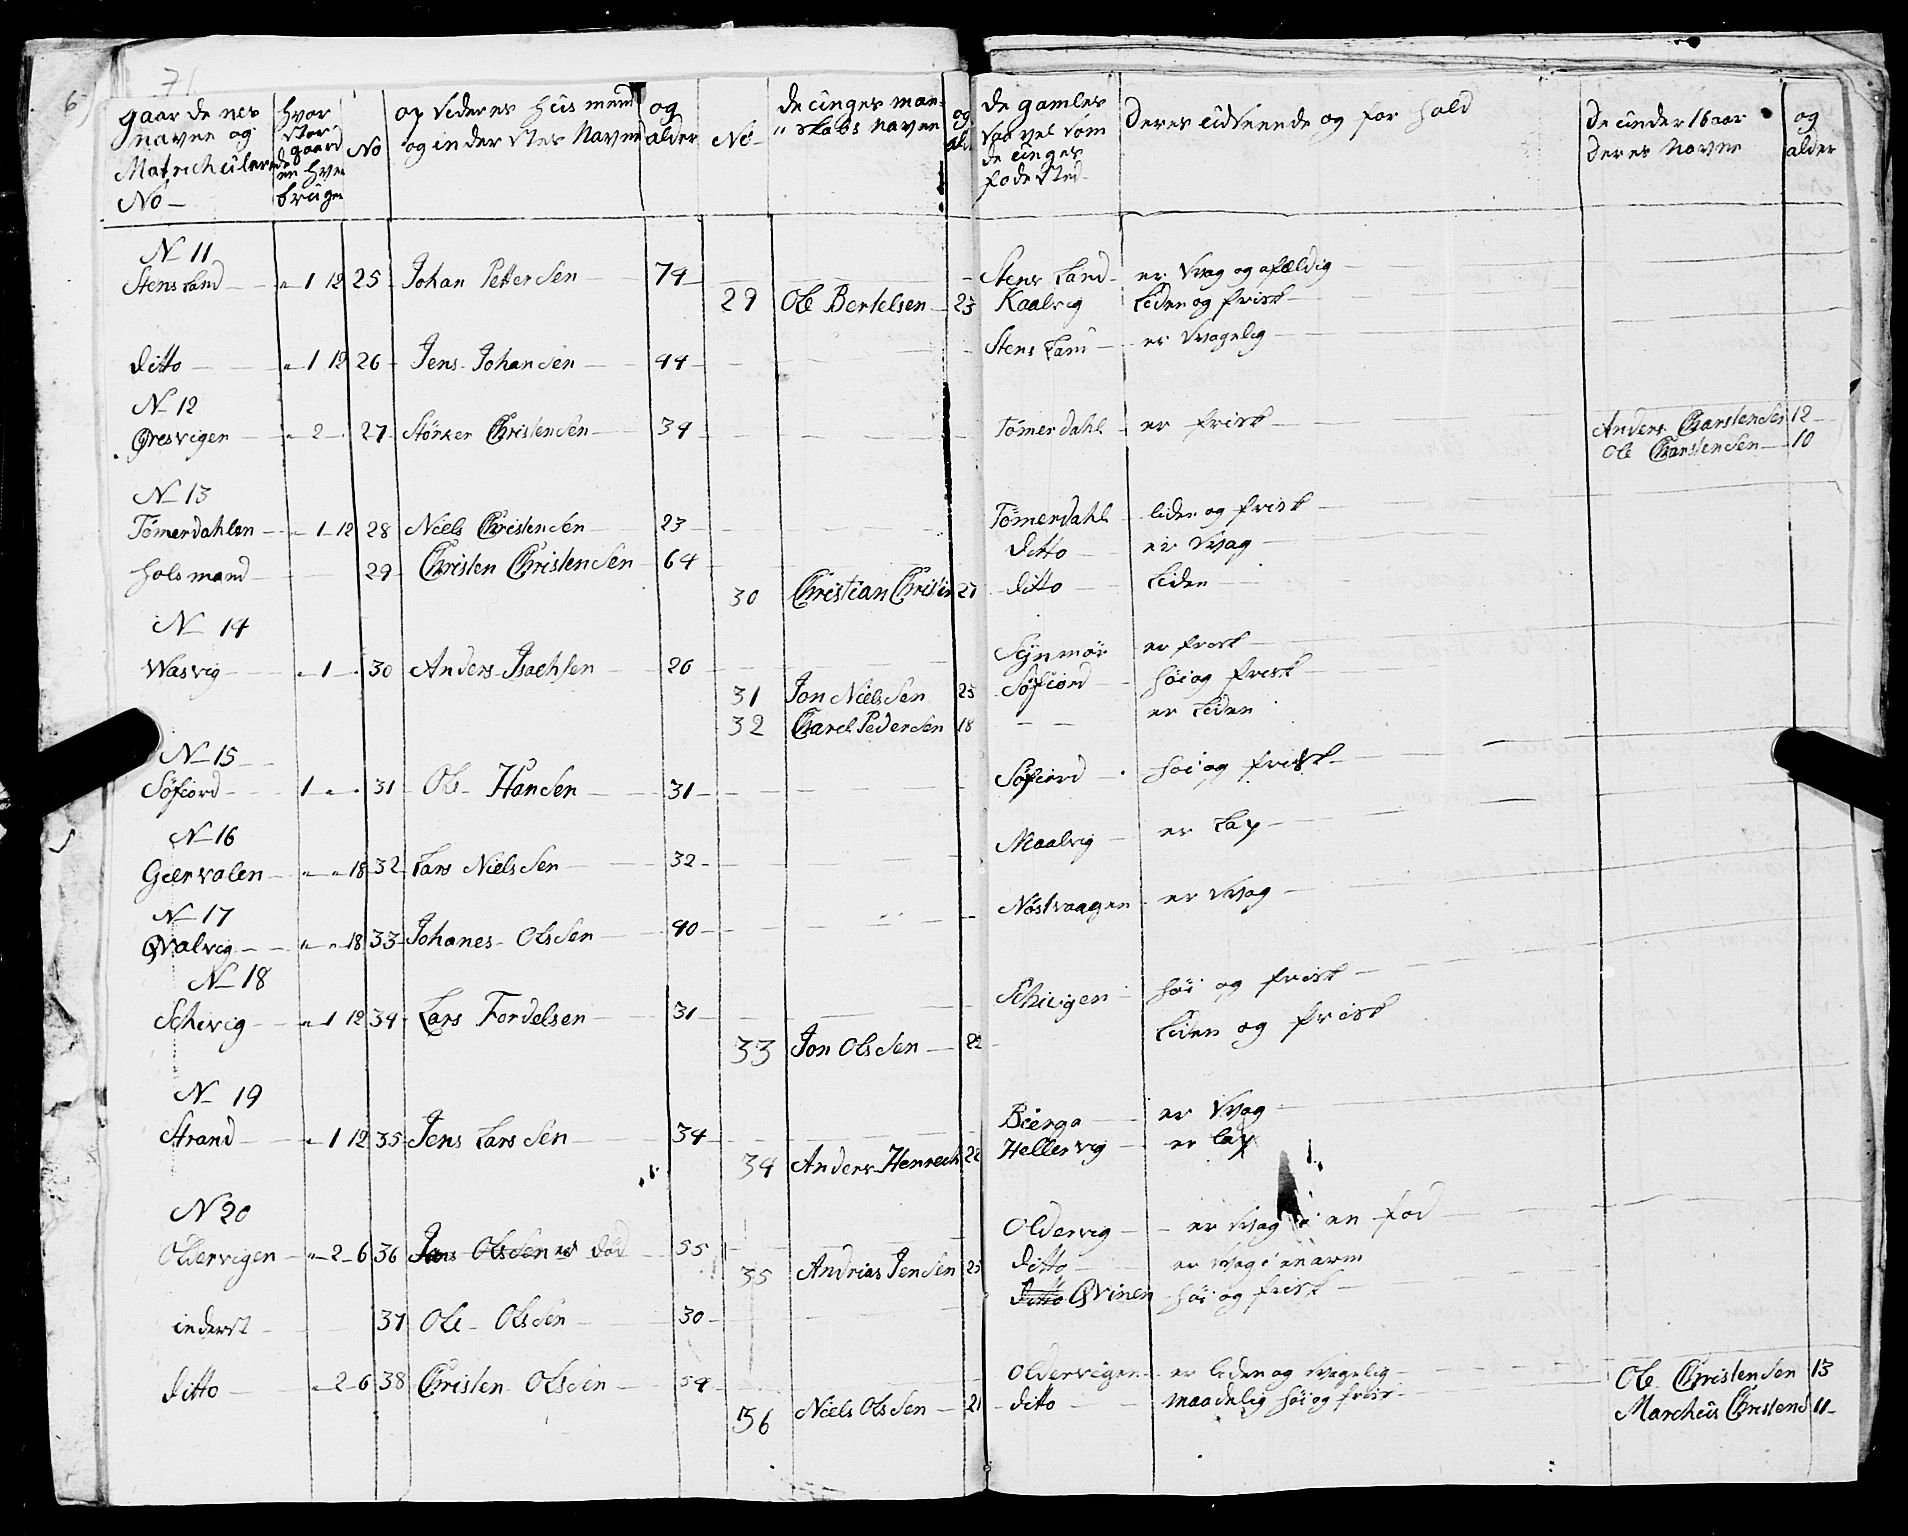 6 71
gaardenes navne og Matrichulerede No —
hvor stor gaard en hver bruger
No
opsideres hüsmend og inderstes Navne
og alder
No —
de ünges mandskabs navne
og ald
de gamles saavel som de ünges fødested
deres üdseende og for hold
de ünder 16 aar deres navne
og alder
N 11
Stensland — „ 1 12 25 Johan Pettersen — 74 — Stensland — er svag og afældig —
29 Ole Bertelsen — 23 Kaalvig liden og frisk —
ditto — „ 1 12 26 Jens Johansen — 44 — Stens Lan — er svagelig —
N 12
Qresvigen — „ 2 — 27 Störker Christensen — 34 — Tömerdahl — er frisk — Anders Charstensen 12
Ole Charstensen — 10
N 13
Tömerdahlen — „ 1 12 28 Niels Christensen — 23 — Tömerdahl — liden og frisk —
holsmand — 29 Christen Christensen — 64 — ditto — er svag —
30 Christian Christen 21 ditto — Liden —
N 14
Wasvig — „ 1 — 30 Anders Isachsen — 26 — Synmör er frisk —
31 Jon Nielsen 25 Söfiord — höi og frisk —
32 Charel Pedersen 18 — — er Liden
N 15
Söfiord — 1 „ 31 Ole Hansen — 31 — Söfiord — höi og frisk —
N 16
Geervalen — „ „ 18 32 Lars Nielsen — 32 — Maalvig — er Lap —
N 17
Qvalvig — „ „ 18 33 Johanes Olssen — 40 — Nöstvaagen — er svag —
N 18
Schivig — „ 1 12 34 Lars Fordelsen — 31 — Schivigen — höi og frisk —
33 Jon Olssen — 22 — Liden og frisk
N 19
Strand — „ 1 12 35 Jens Larssen — 34 — Bierga — er svag —
34 Anders Henrech 22 Hellervig — er lap
N 20
Oldervigen — „ 2 6 36 Jens Olssen er död — 55 — Oldervig — er svag i en fod —
35 Andrias Jensen 25 ditto — er svag i en arm
inderst — 37 Ole Olssen — 30 — ditto Qvinen höi og frisk —
ditto — „ 2 6 38 Christen Olssen — 54 — Oldervigen — er liden og svagelig — Ole Christensen 13
36 Niels Olssen — 21 — ditto — maadelig höi og frisk — Marchüs Christens 11 —